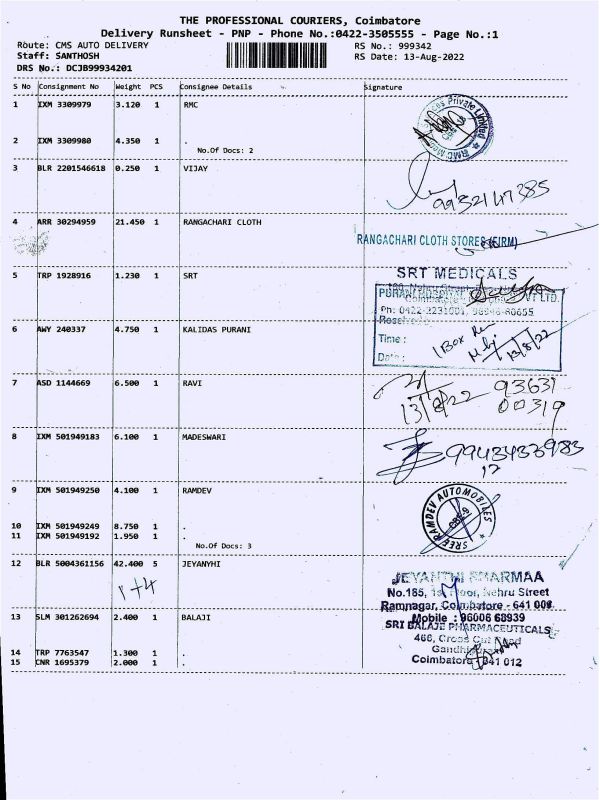 THE PROFESSIONAL COURIERS, Coimbatore
Delivery Runsheet - PNP - Phone No.:0422-3505555 - Page No.:1
Route: CMS AUTO DELIVERY
RS No.: 999342
Staff: SANTHOSH
RS Date: 13-Aug-2022
DRS No.: DCJB99934201
S No Consignment No Weight PCS Consignee Details Signature
1 IXM 3309979 3.120 1 RMC
2 IXM 3309980 4.350 1 .
No.Of Docs: 2
3 BLR 2201546618 0.250 1 VIJAY
4 ARR 30294959 21.450 1 RANGACHARI CLOTH
RANGACHARI CLOTH STORES (FIRM)
5 TRP 1928916 1.230 1 SRT
SRT MEDICALS
Time :
1 Box
13/8/22
Date :
6 AWY 240337 4.750 1 KALIDAS PURANI
7 ASD 1144669 6.500 1 RAVI
13/8/22
93631
00319
8 IXM 501949183 6.100 1 MADESWARI
9 IXM 501949250 4.100 1 RAMDEV
SREE RAMDEV AUTOMOBILES
CBE-9
10 IXM 501949249 8.750 1 .
11 IXM 501949192 1.950 1 .
No.Of Docs: 3
12 BLR 5004361156 42.400 5 JEYANYHI
1+4
JEYANTHI PHARMAA
No.185, 1st Floor, Nehru Street
Ramnagar, Coimbatore - 641 009.
Mobile : 96006 68939
13 SLM 301262694 2.400 1 BALAJI
SRI BALAJE PHARMACEUTICALS
468, Cross Cut Road
Gandhipuram
Coimbatore 641 012
14 TRP 7763547 1.300 1 .
15 CNR 1695379 2.000 1 .